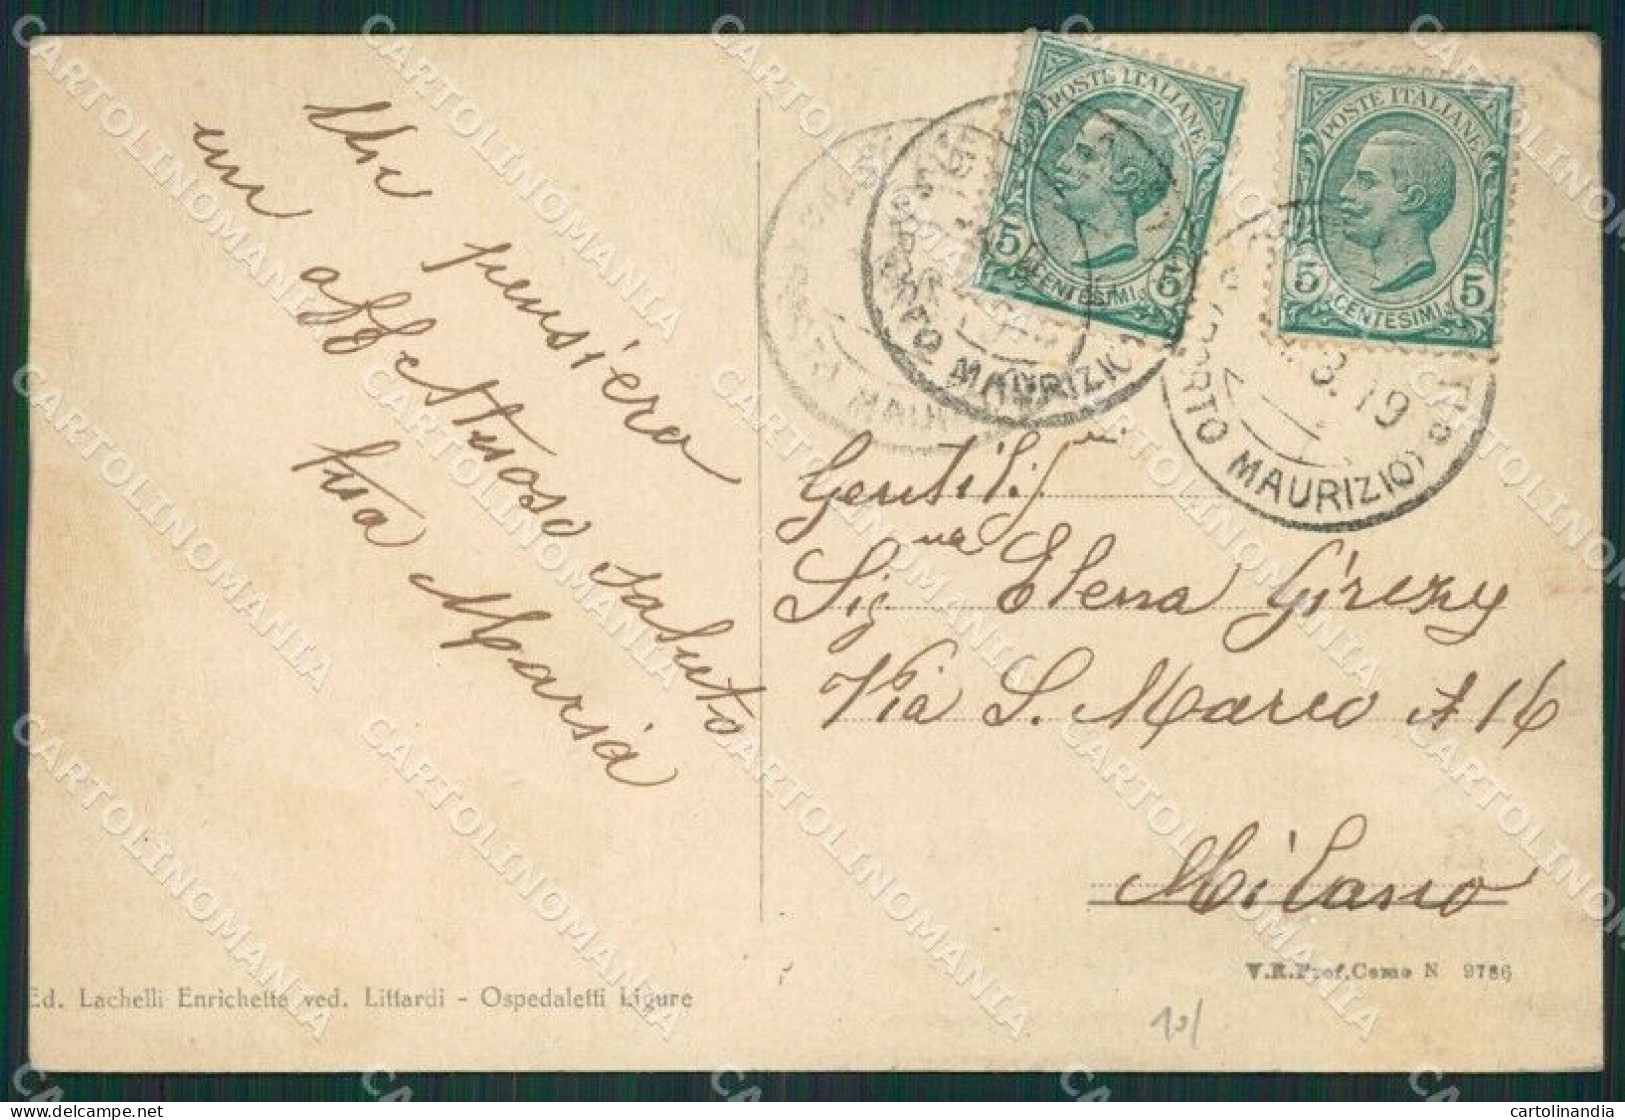 Un pensiero
un affettuoso saluto
tua Maria
POSTE ITALIANE
5 CENTESIMI 5
POSTE ITALIANE
5 CENTESIMI 5
PORTO MAURIZIO
PORTO MAURIZIO
3.19
Gentilis.
Sig.na Elena
Via S. Marco N 16
Milano
V.R.Prof.Como N 9786
Ed. Lachelli Enrichetta ved. Littardi - Ospedaletti Ligure
CARTOLINOMANIA
cartolinandia